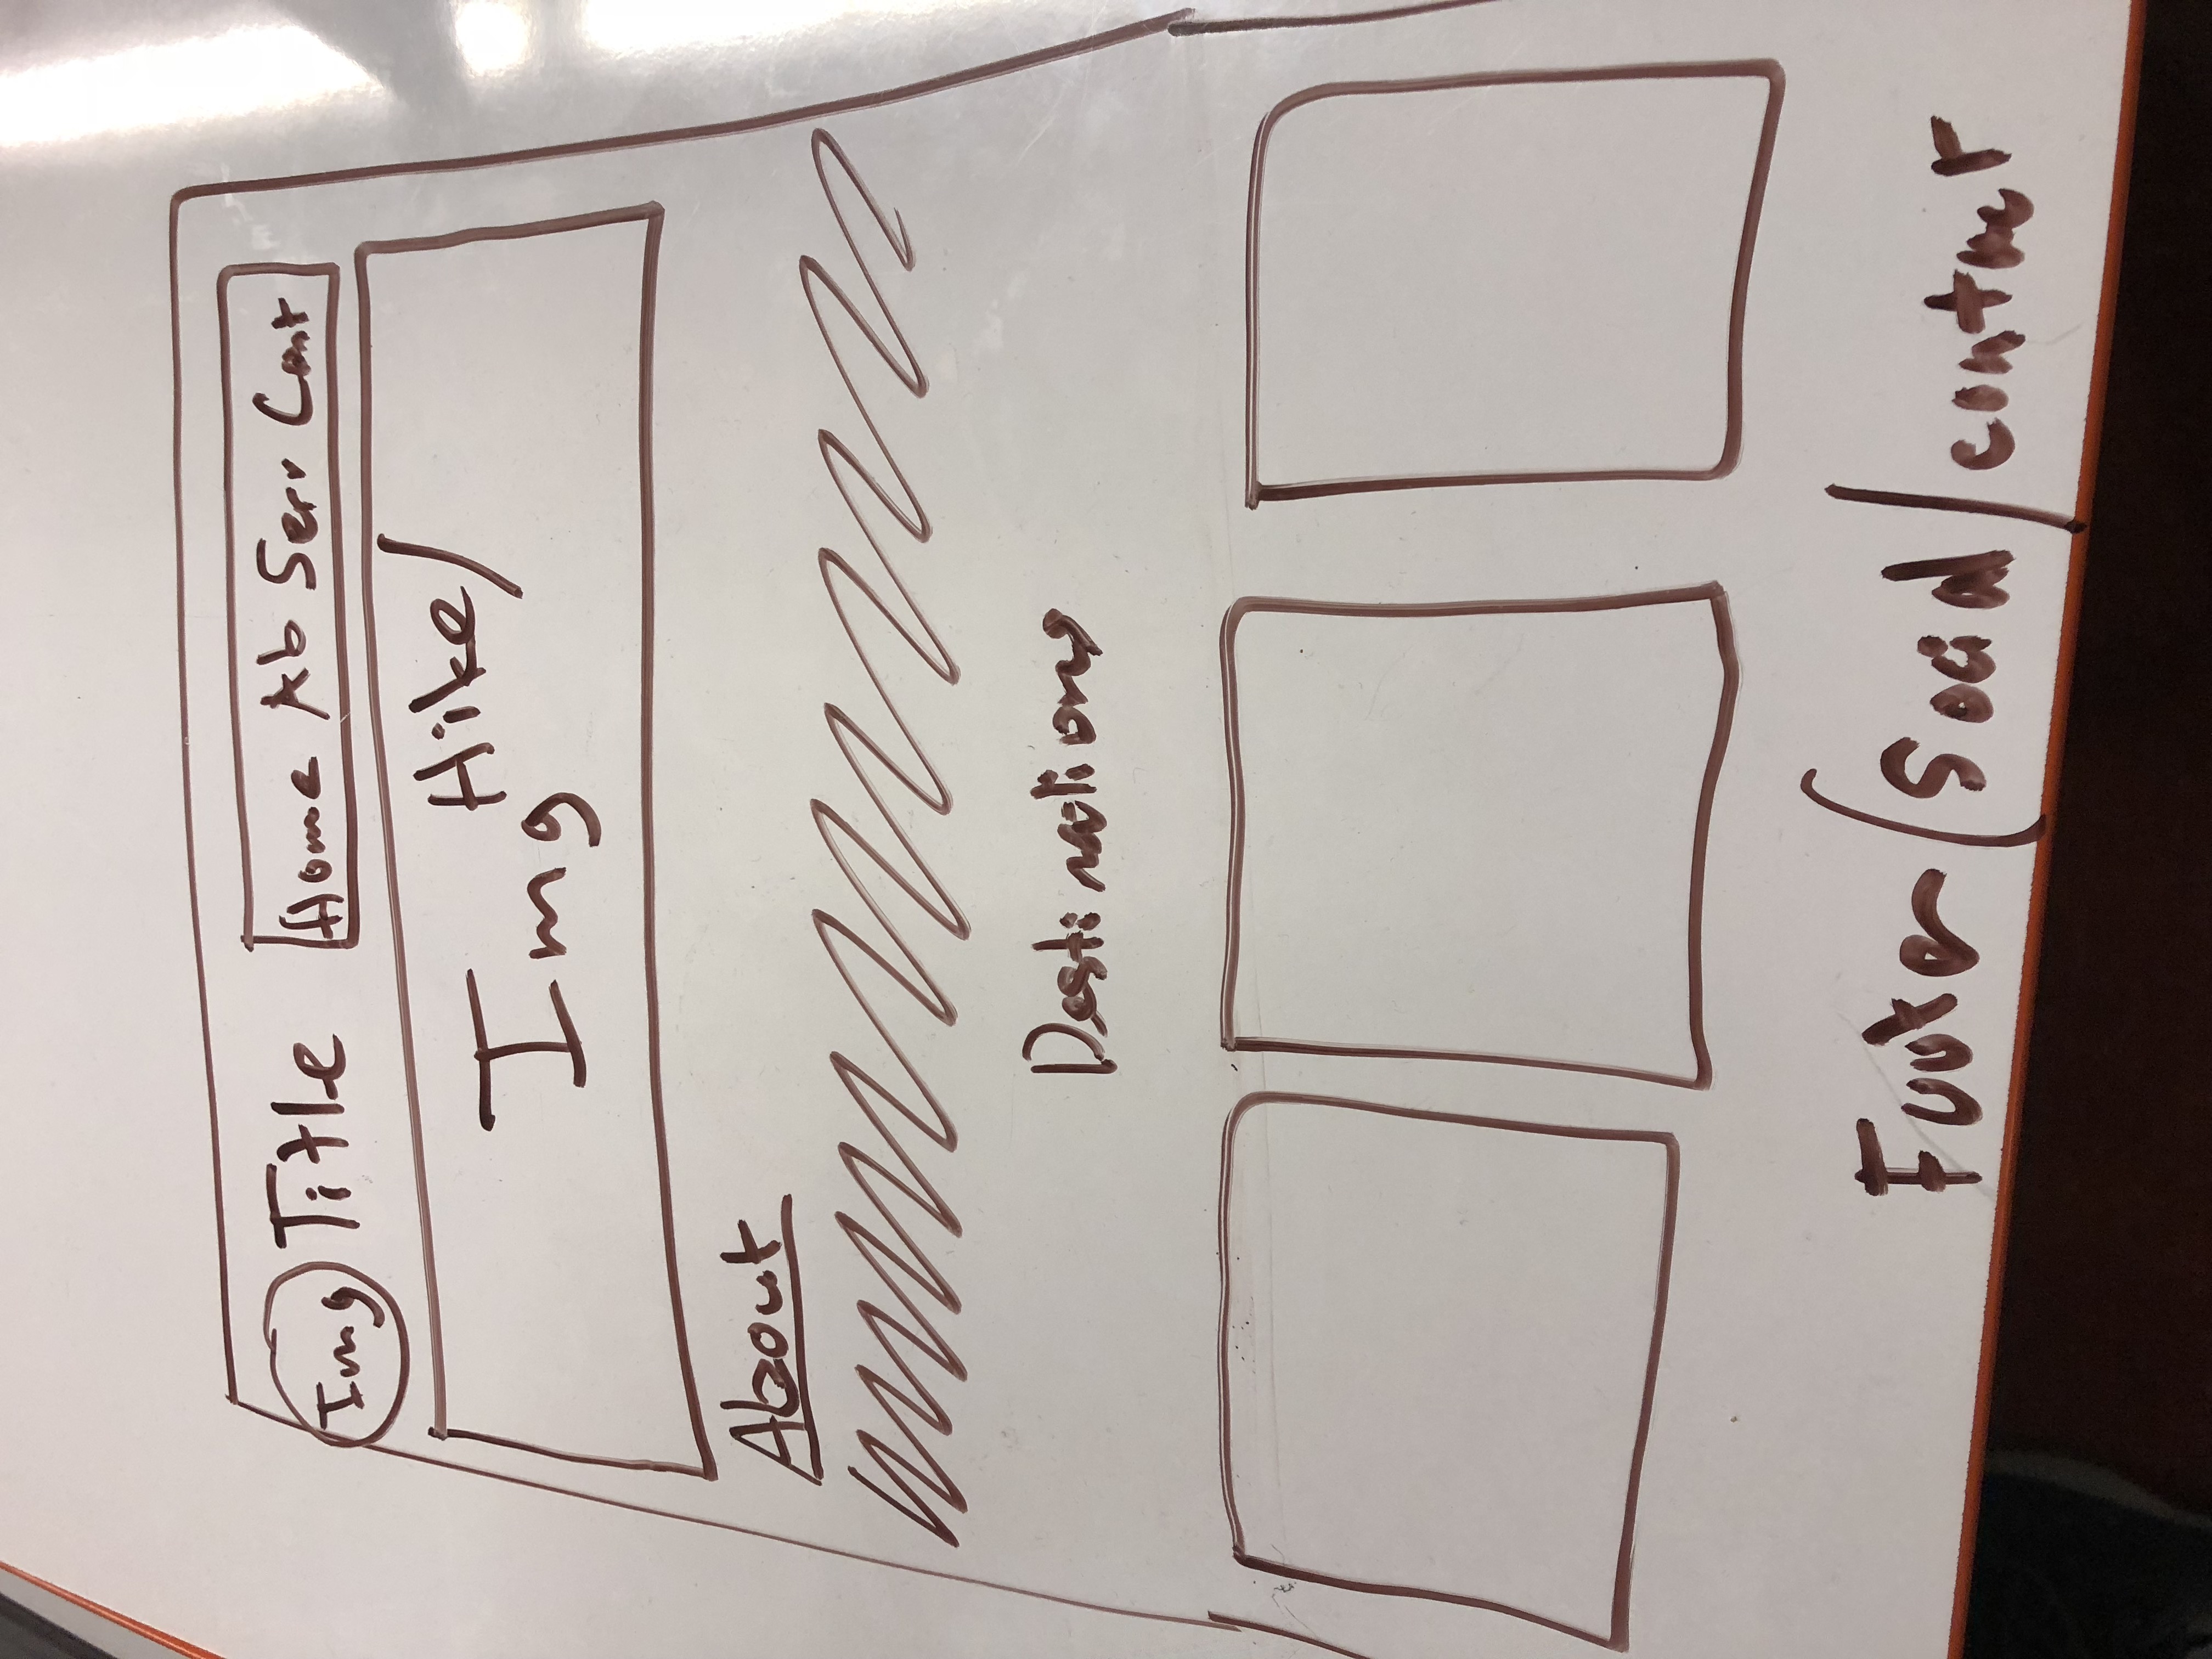 Img Title Home Ab Serv Cont
Img Hike/
About
Destinations
Footer/Social/contact